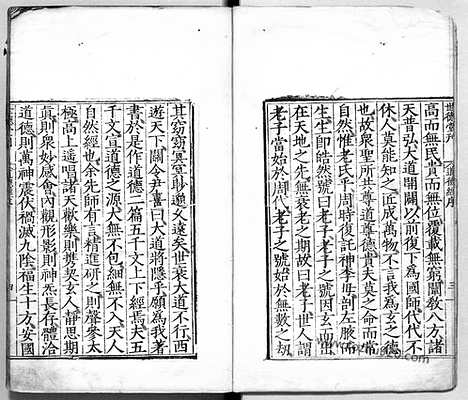 高而無民貴而無位覆載無窮闡教八方諸
天普弘大道開闢以前復下為國師代代不
休人莫能知之匠成萬物不言我為玄之德
也故衆聖所共尊道尊德貴夫莫之命而常
自然惟老氏乎周時復託神李母剖左腋而
生生即皓然號曰老子老子之號因玄而出
在天地之先無衰老之期故曰老子世人謂
老子當始於周代老子之號始於無數之劫
其窈窈冥冥眇邈久遠矣世衰大道不行西
遊天下關令尹喜曰大道將隱乎願為我著
書於是作道德二篇五千文上下經焉夫五
千文宣道德之源大無不包細無不入天人
自然經也余先師有言精進研之則聲參太
極高上遥唱諸天歡樂則攜契玄人靜思期
真則衆妙感會内觀形影則神炁長存體洽
道德則萬神震伏禍滅九陰福生十方安國
世德堂刊
道德經序
三
四